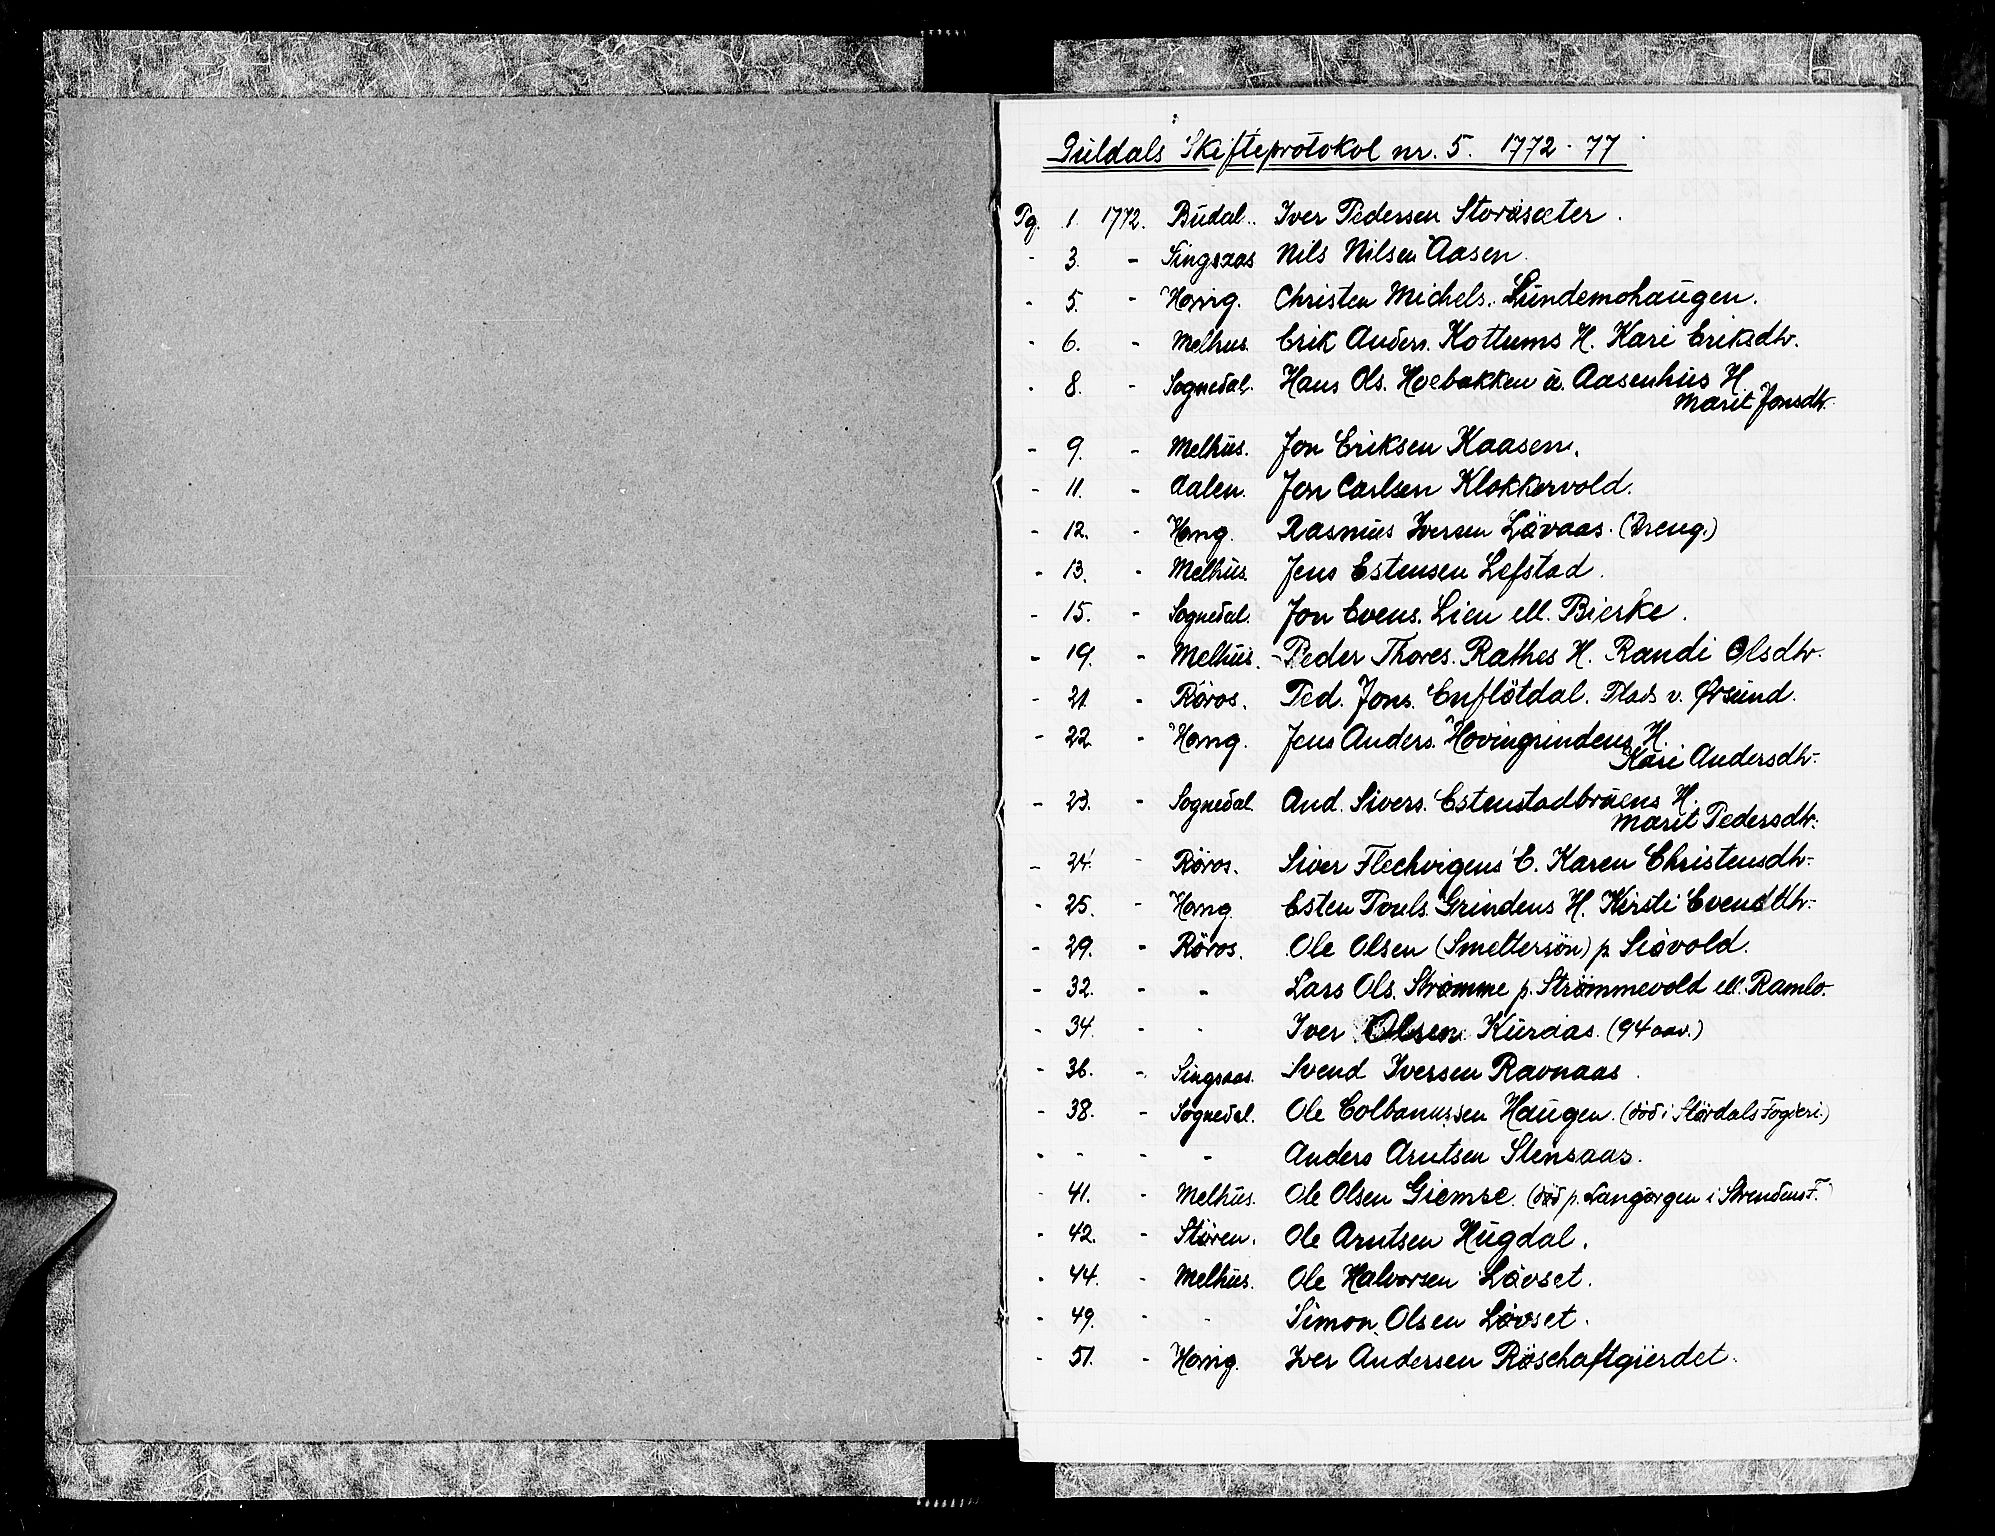 Guldals Skifteprotokol nr. 5. 1772-77
Pg. 1. 1772. Budal. Iver Pedersen Storåsæter.
- 3. - Singsaas Nils Nilsen Aasen.
- 5. - Horrig. Christen Michels. Lundemohaugen.
- 6. - Melhus. Erik Anders. Kottums H. Kari Eriksdtr.
- 8. - Sognedal. Hans Ols. Hoebakken u. Aasenhus H.
Marit Jonsdtr.
- 9. - Melhus. Jon Eriksen Kaasen.
- 11. - Aalen. Jon Carlsen Klokkervold.
- 12. - Horrig. Rasmus Iversen Løvaas. (Dreng.)
- 13. - Melhus. Jens Estensen Lefstad.
- 15. - Sognedal. Jon Evens. Lien ell. Bierke.
- 19. - Melhus. Peder Thores. Rathes H. Randi Olsdtr.
- 21. - Røros. Ped. Jons. Enflötdal. Plads v. Øresund.
- 22 - Horrig. Jens Anders. Hovingrindens H.
Kari Andersdtr.
- 23. - Sognedal. And. Sivers. Estenstadbrúens H.
Marit Pedersdtr.
- 24. - Røros. Siver Flechvigens E. Karen Christensdtr.
- 25. - Horrig Esten Pouls. Grindens H. Kirsti Evendtr.
- 29. - Röros. Ole Olsen (Smeltersön) p. Siövold.
- 32. - - Lars Ols. Strømme p. Strömmevold ell. Ramlo.
- 34. - - Iver Olsen Kuraas. (94 aar.)
- 36. - Singsaas. Svend Iversen Ravnaas.
- 38. - Sognedal. Ole Colbanussen Haugen. (död i Stördals Fogderi.)
- - - - Anders Arntsen Stensaas.
- 41. - Melhus. Ole Olsen Giemse. (död p. Langørgen i Strindens F.)
- 42. - Støren. Ole Arntsen Hugdal.
- 44. - Melhus. Ole Halvorsen Løvset.
- 49. - - Simon Olsen Løvset.
- 51. - Horrig. Iver Andersen Røschaftgierdet.